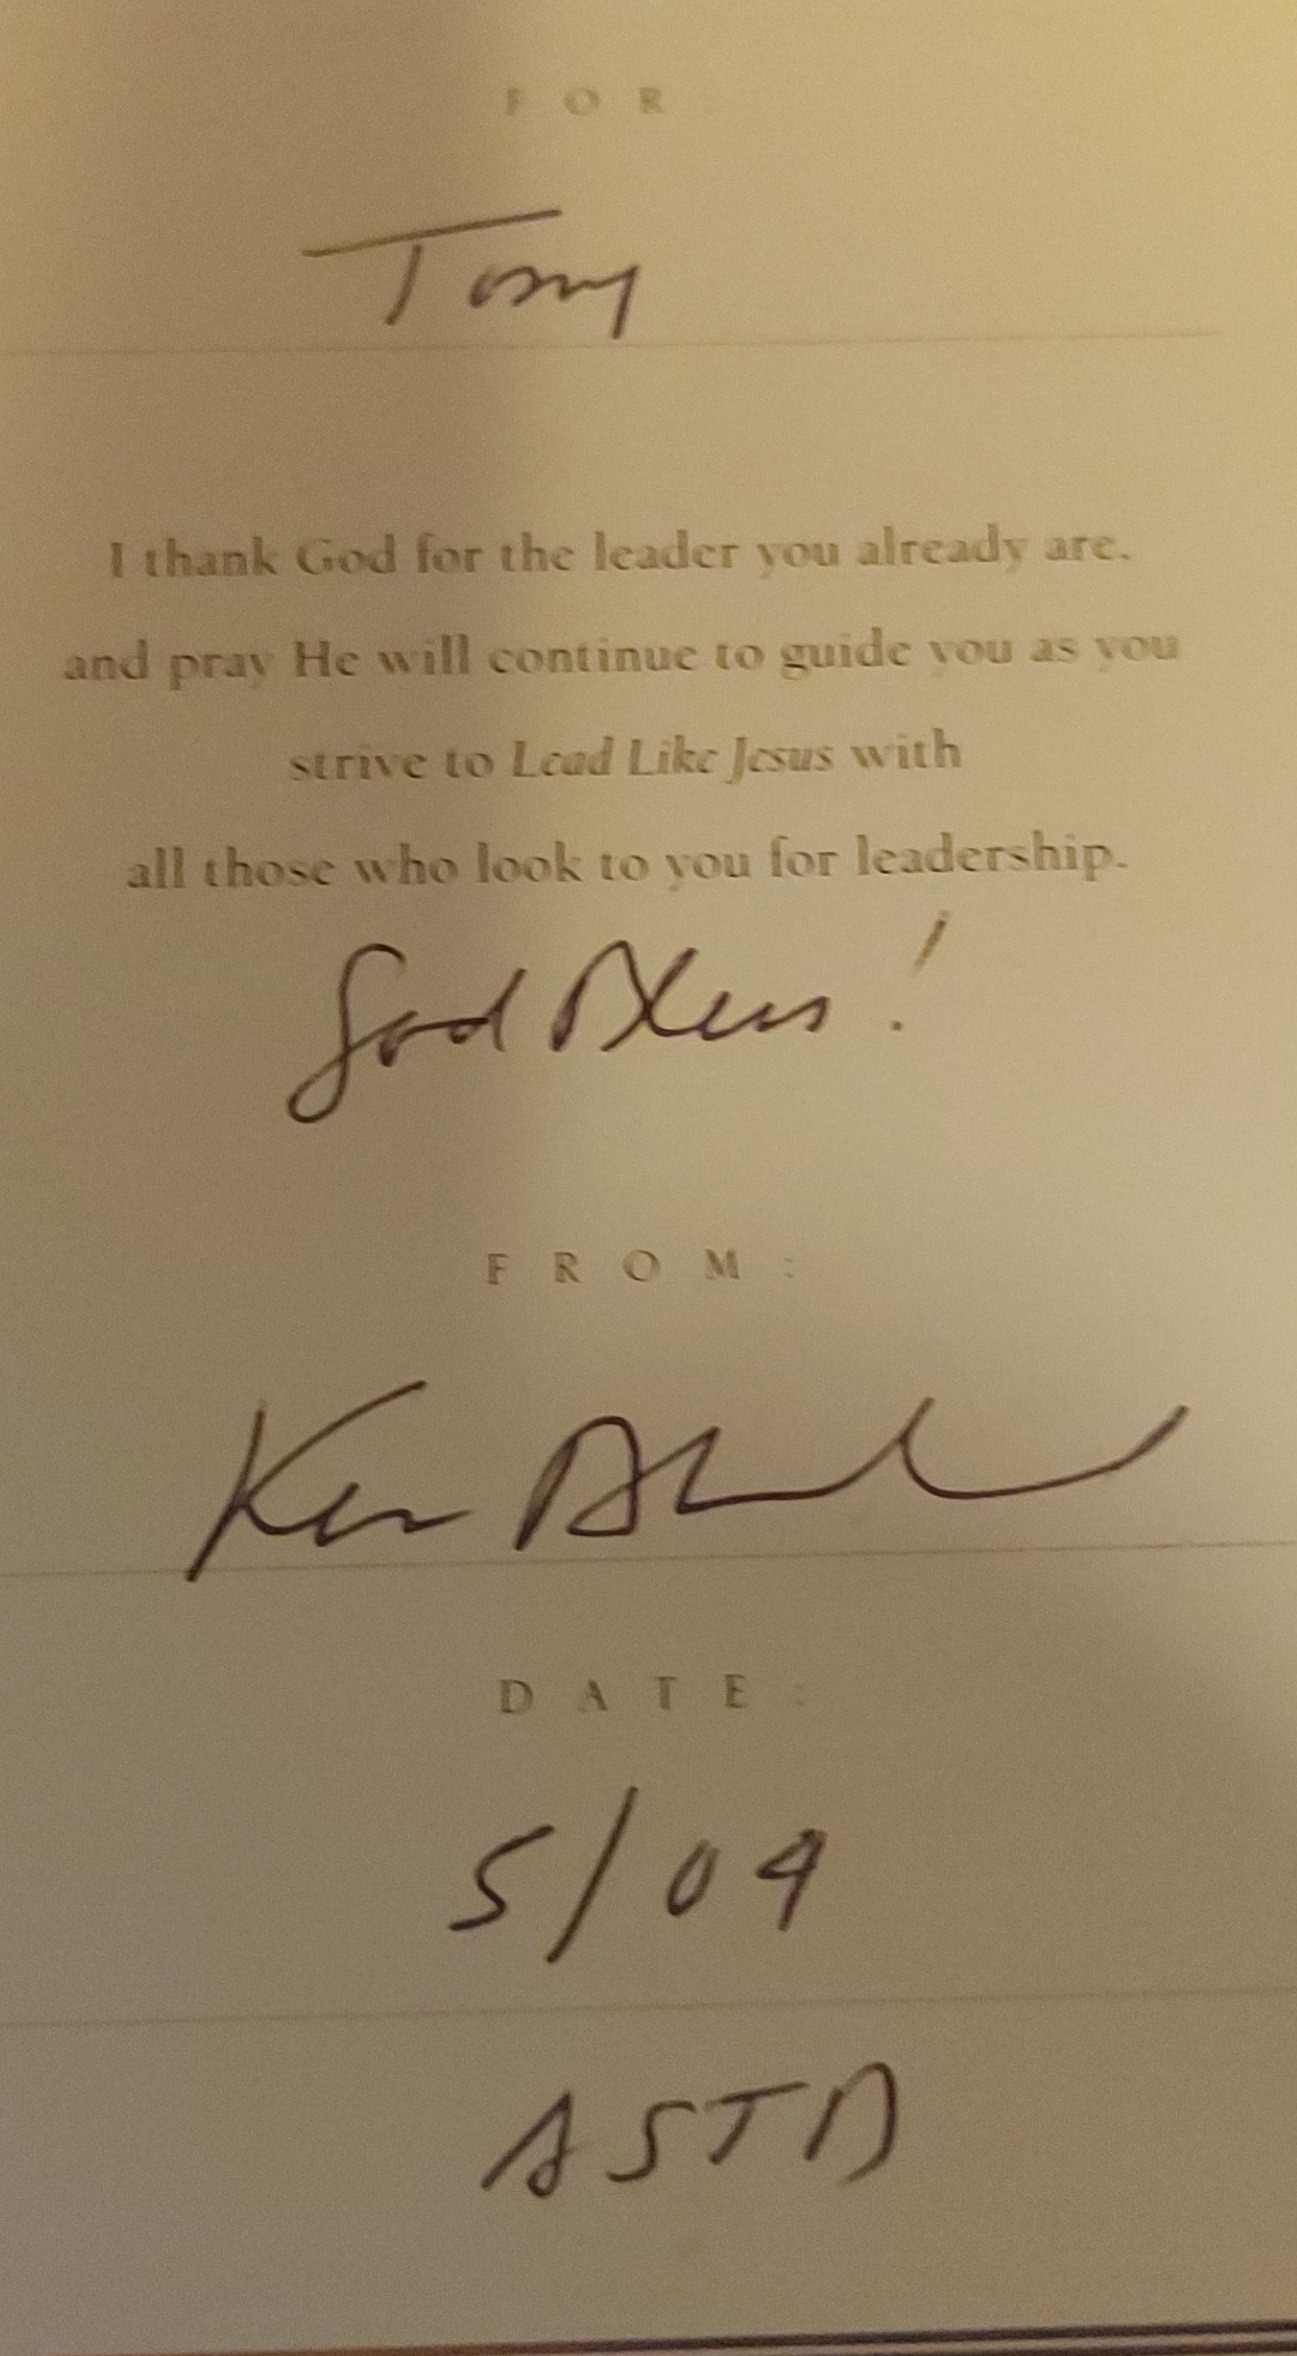 FOR
Tony
I thank God for the leader you already are,
and pray He will continue to guide you as you
strive to Lead Like Jesus with
all those who look to you for leadership.
God Bless!
FROM:
Ken
DATE:
5/04
ASTD